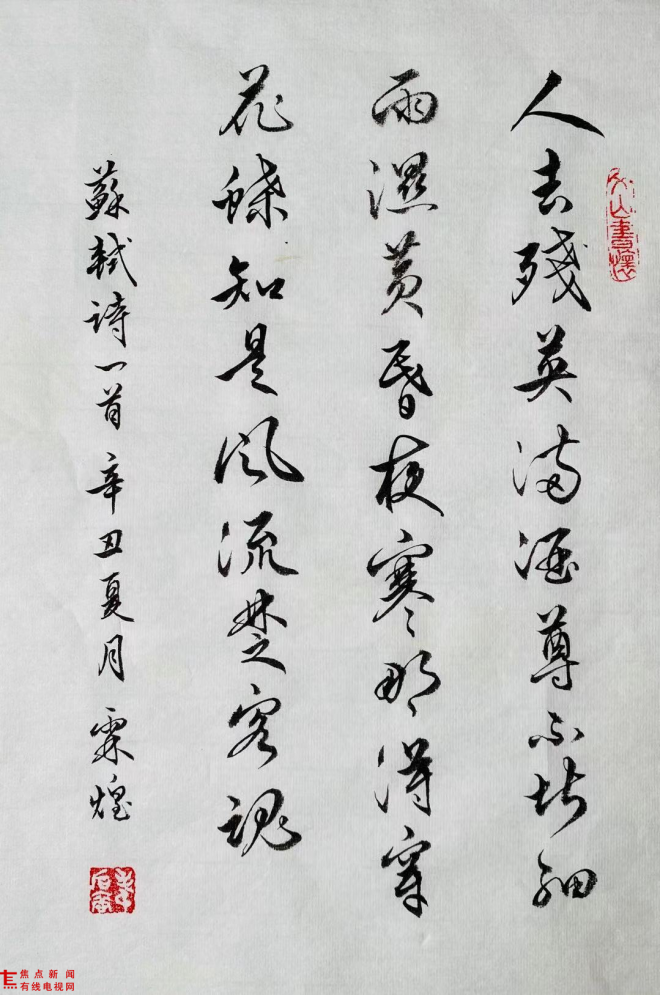 人去殘英满酒尊不堪细
雨濕黄昏夜寒那得穿
花蝶知是风流楚客魂
蘇軾诗一首 辛丑夏月 霖煌
焦点新闻
有线电视网